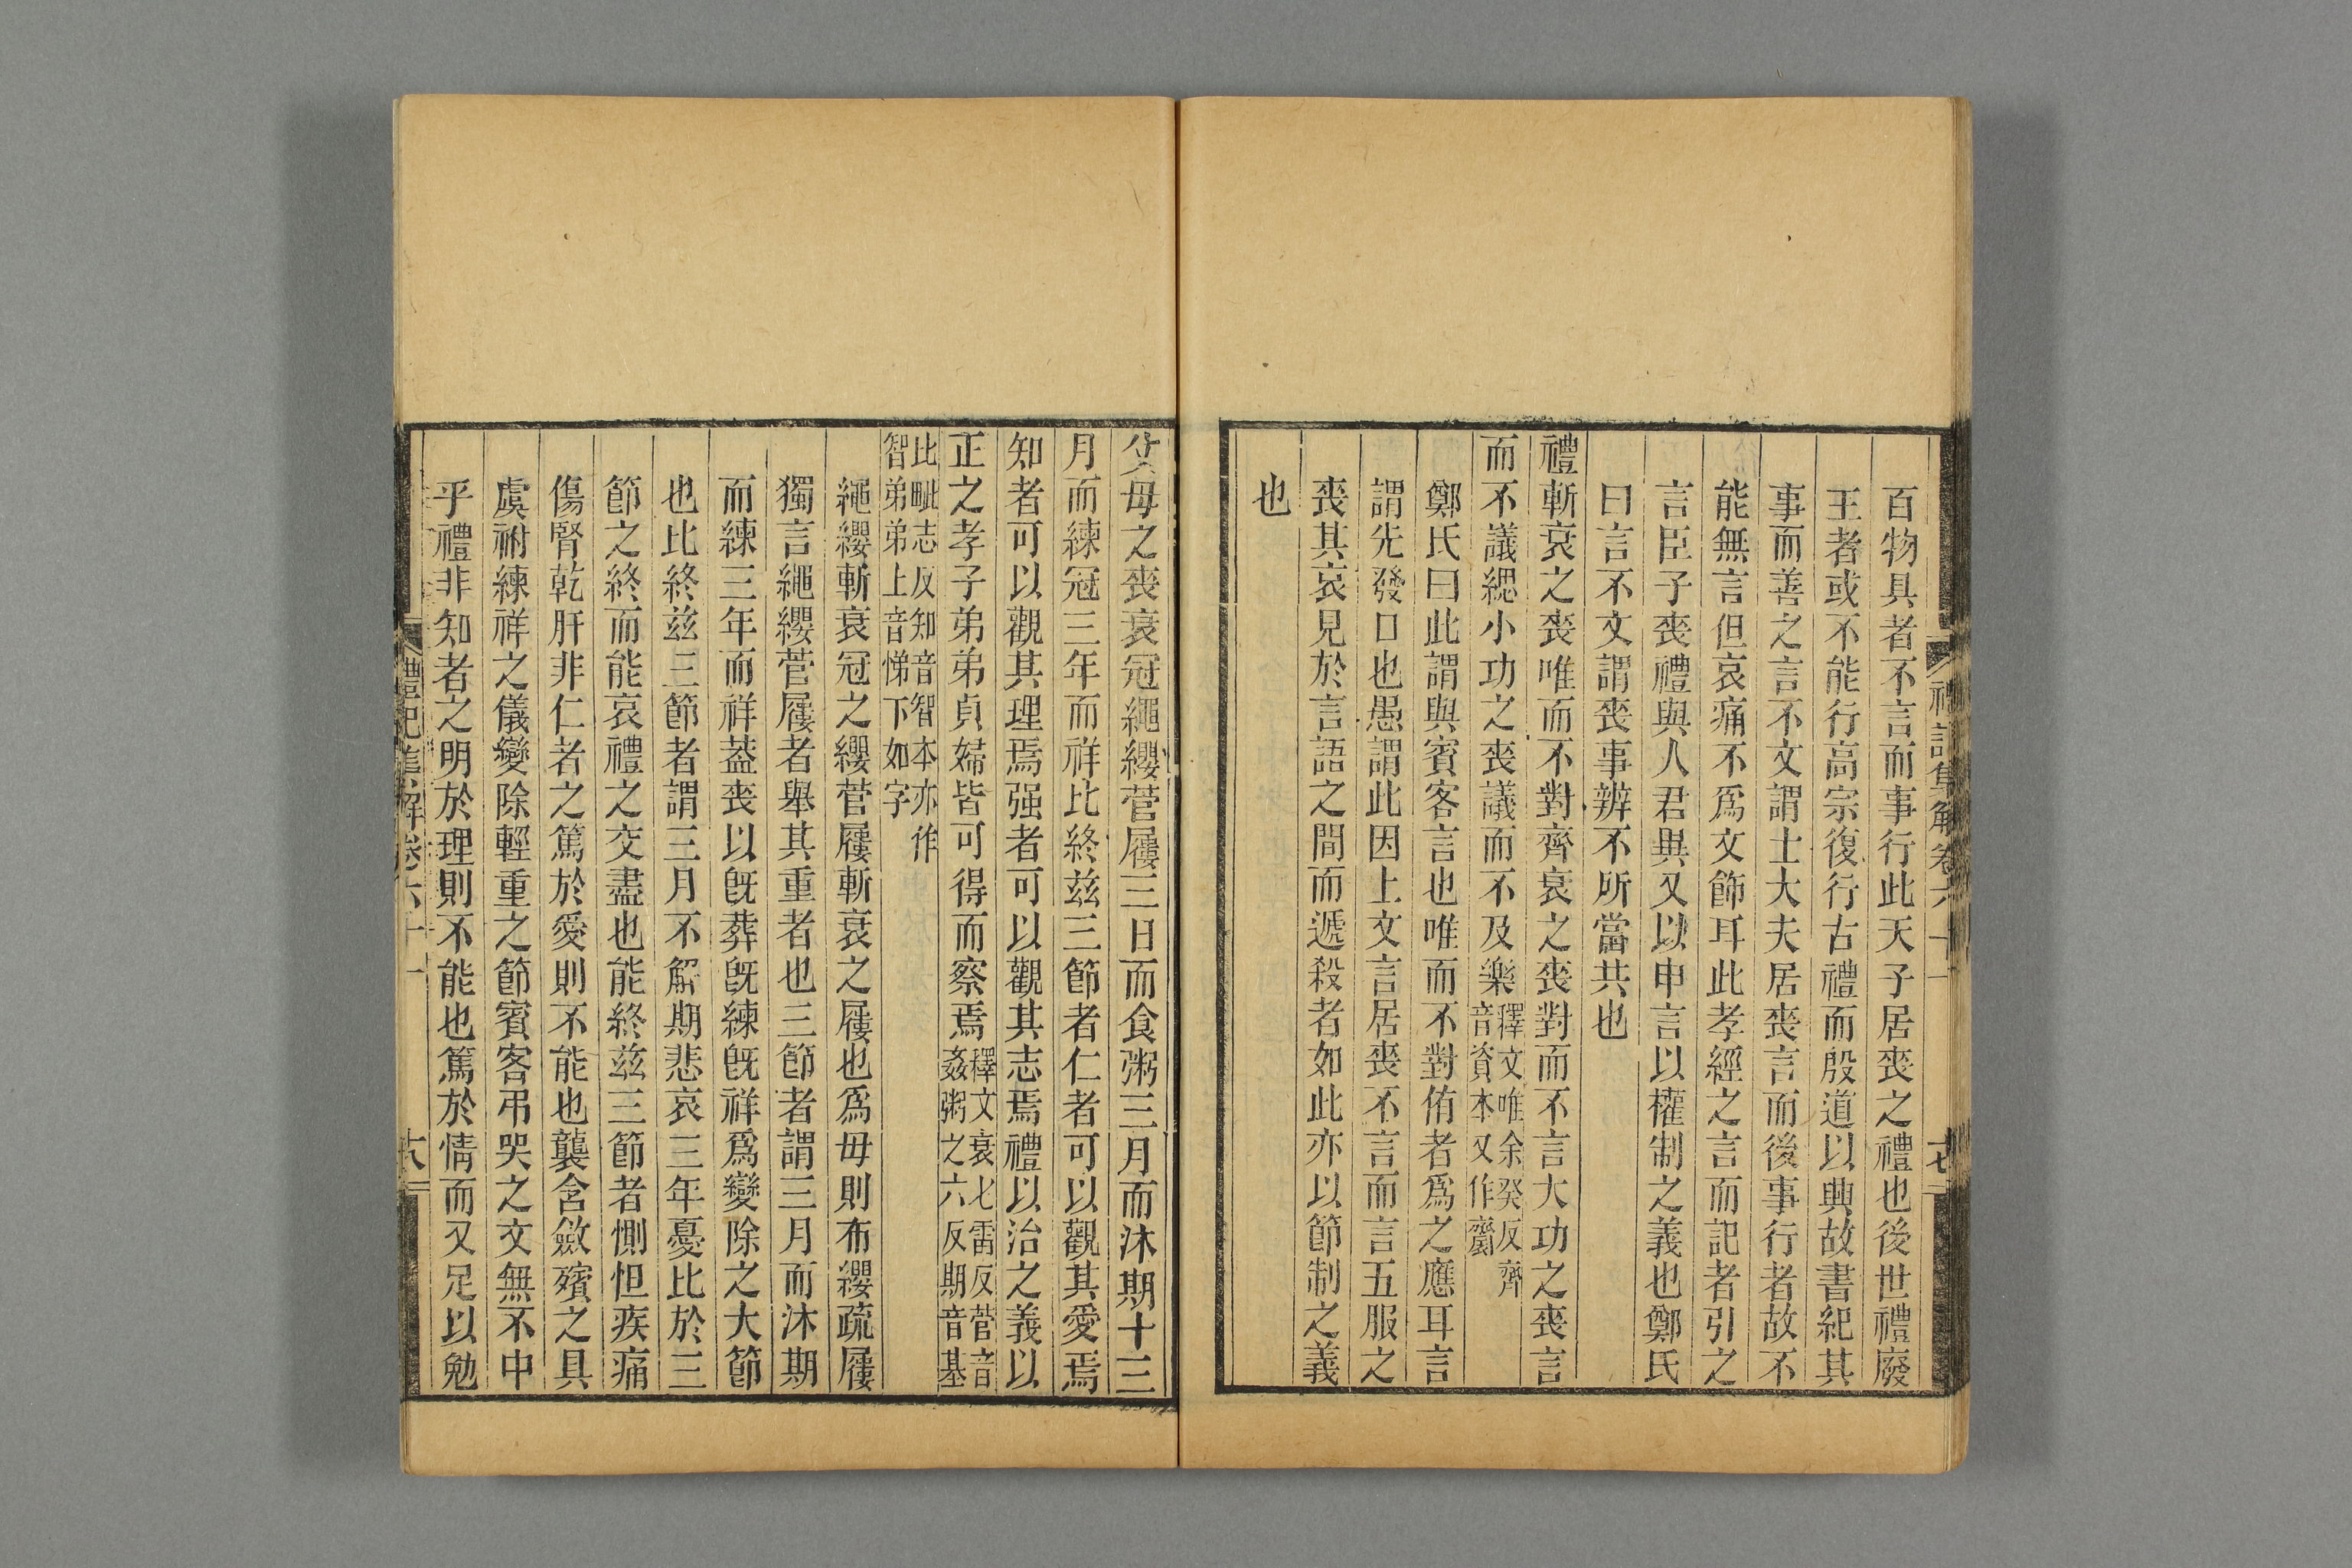 禮記集解卷六十一
十七
百物具者不言而事行此天子居喪之禮也後世禮廢
王者或不能行高宗復行古禮而殷道以興故書紀其
事而善之言不文謂士大夫居喪言而後事行者故不
能無言但哀痛不爲文飾耳此孝經之言而記者引之
言臣子喪禮與人君異又以申言以權制之義也鄭氏
曰言不文謂喪事辨不所當共也
禮斬衰之喪唯而不對齊衰之喪對而不言大功之喪言
而不議緦小功之喪議而不及樂釋文唯余癸反齊音資本又作齏
鄭氏曰此謂與賓客言也唯而不對侑者爲之應耳言
謂先發口也愚謂此因上文言居喪不言而言五服之
喪其哀見於言語之間而遞殺者如此亦以節制之義
也
父母之喪衰冠繩纓菅屨三日而食粥三月而沐期十三
月而練冠三年而祥比終茲三節者仁者可以觀其愛焉
知者可以觀其理焉强者可以觀其志焉禮以治之義以
正之孝子弟弟貞婦皆可得而察焉釋文衰七雷反菅音姦粥之六反期音基
比毗志反知音智本亦作智弟弟上音悌下如字
繩纓斬衰冠之纓菅屨斬衰之屨也爲母則布纓疏屨
獨言繩纓菅屨者舉其重者也三節者謂三月而沐期
而練三年而祥葢喪以旣葬旣練旣祥爲變除之大節
也比終茲三節者謂三月不解期悲哀三年憂比於三
節之終而能哀禮之交盡也能終茲三節者惻怛疾痛
傷腎乾肝非仁者之篤於愛則不能也襲含斂殯之具
虞祔練祥之儀變除輕重之節賓客弔哭之文無不中
乎禮非知者之明於理則不能也篤於情而又足以勉
禮記集解卷六十一
十八